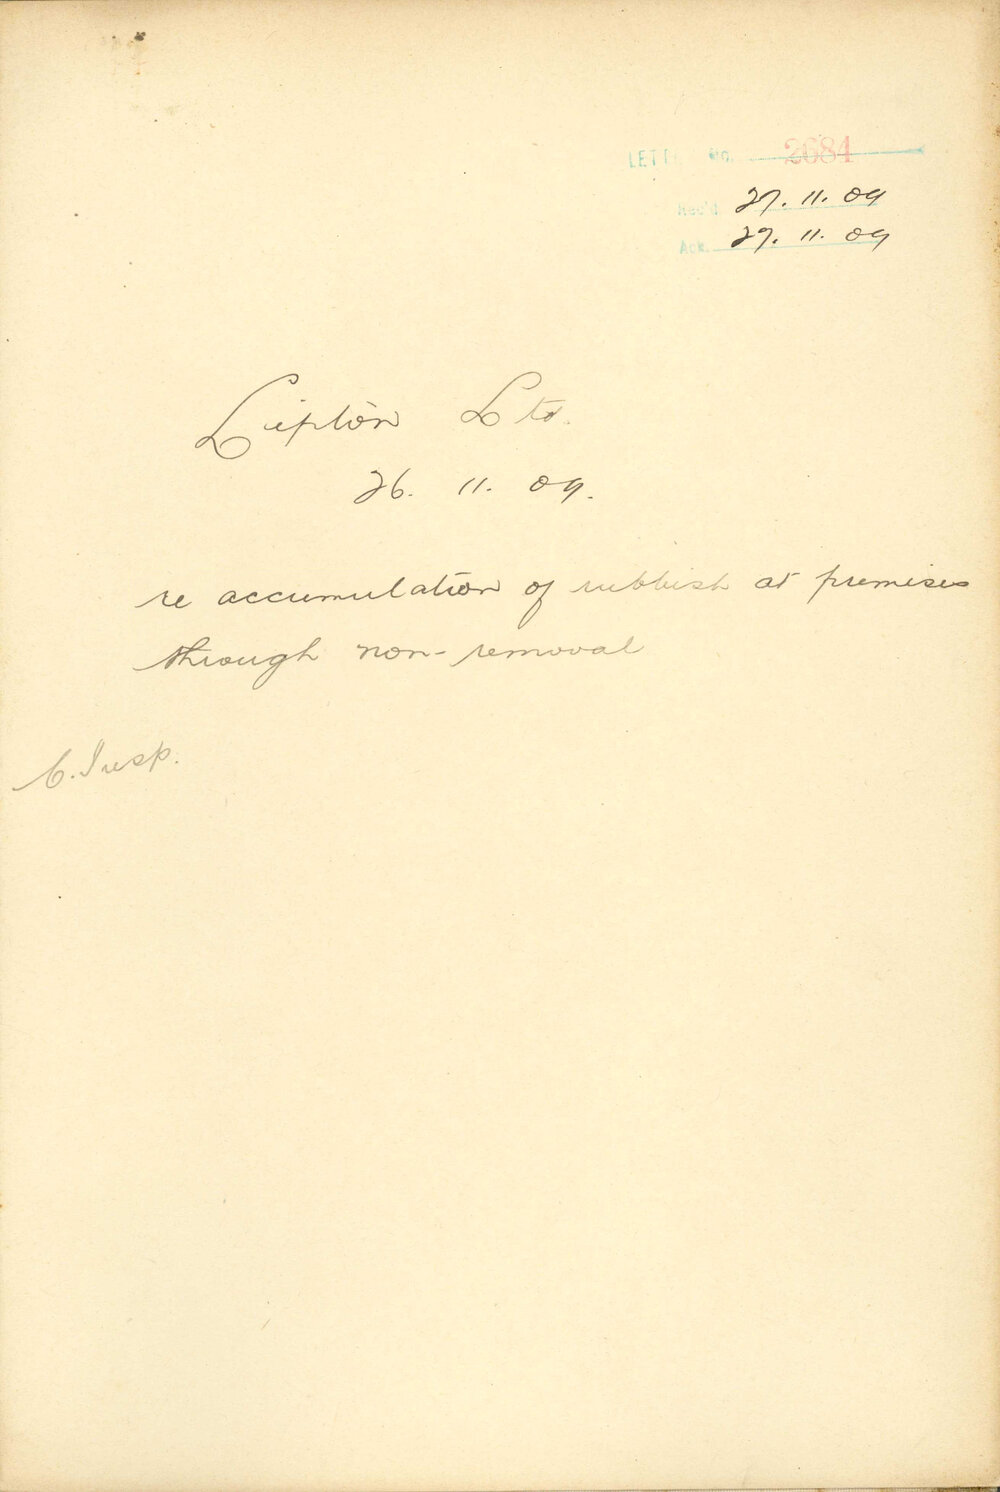 LETTER No. 2684
Rec'd 27.11.09
Ack. 29.11.09
Lipton Ltd.
26.11.09.
re accumulation of rubbish at premises
through non-removal
C. Insp.